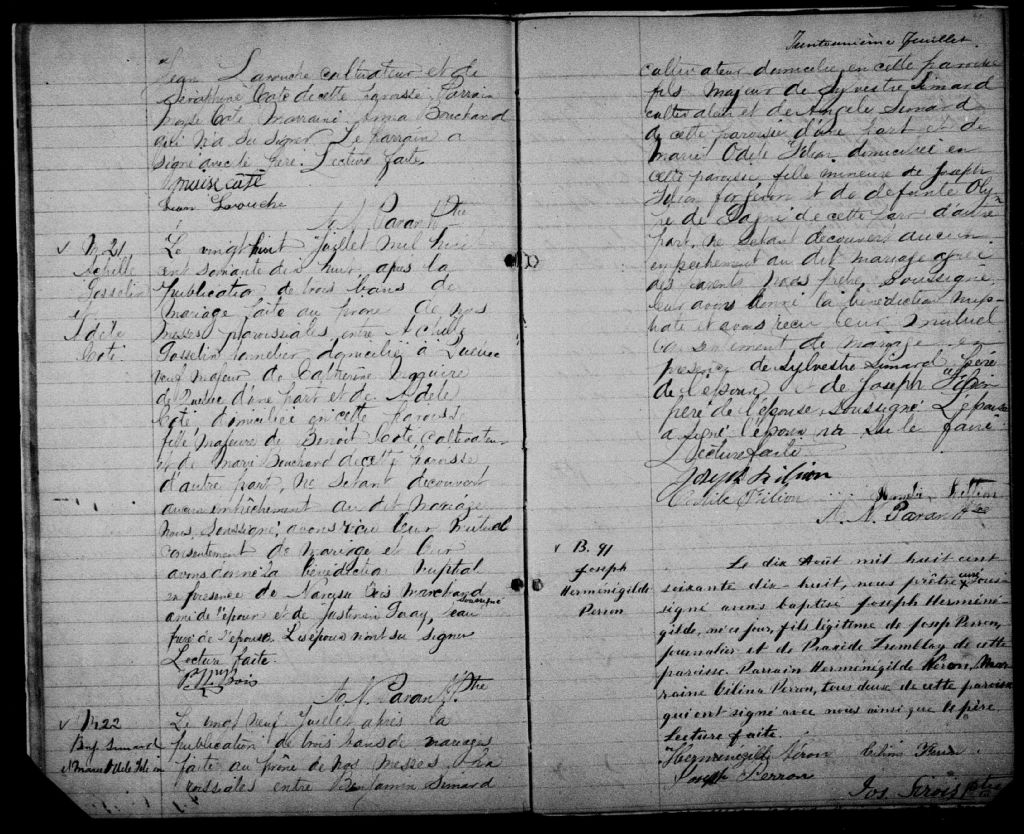 Jean Larouche cultivateur et de
Séraphine Coté de cette paroisse Parrain
Moyse Coté Marraine Anna Bouchard
qui n'a su signer. Le parrain a
signé avec le père. Lecture faite
Jean Larouche
A. N. Paran Ptre
M. 21
Achille
Gosselin
&
Adèle
Coté
Le vingt huit Juillet mil huit
cent soixante dix huit, après la
publication de trois bancs de
mariage faite au prône de nos
messes paroissiales, entre Achille
Gosselin domicilié à Québec
veuf majeur de Catherine
de Québec d'une part et de Adèle
Coté domiciliée en cette paroisse
fille majeure de Benoit Coté, cultivateur
et de Marie Bouchard de cette paroisse
d'autre part, ne s'étant découvert
aucun empêchement au dit mariage
nous, soussigné, avons reçu leur mutuel
consentement de mariage et leur
avons donné la bénédiction nuptial
en présence de Narcisse Bois Marchand
ami de l'époux et de beau soussigné
frère de l'épouse. Les époux n'ont su signer
Lecture faite.
Bois
A. N. Paran Ptre
M 22
Benj. Simard
& Marie Odile Filion
Le vingt neuf Juillet après la
publication de trois bans de mariages
faite au prône de nos messes Pa
roissiales entre Benjamin Simard
Trente unième feuillet.
cultivateur domicilié en cette paroisse
fils Majeur de Sylvestre Simard
cultivateur et de Angèle Simard
de cette paroisse d'une part et de
Marie Odile Filion domiciliée en
cette paroisse fille mineure de Joseph
Filion forgeron et de défunte Olym
pe de Gagné de cette paroi d'autre
part. Ne s'étant découvert aucun
empêchement au dit mariage
nous prêtre soussigné
leur avons donné la bénédiction nup
tiale et avons reçu leur mutuel
consentement de mariage en
présence de Sylvestre Simard père
de l'époux et de Joseph Filion
père de l'épouse soussigné L'épouse
a signé l'époux n'a su le faire
Lecture faite
Joseph Filion
Odile Filion
Filion
A. N. Paran Ptre
B. 91
Joseph
Herménégilde
Perron
Le dix Août mil huit cent
soixante dix-huit, nous prêtre curé sous-
signé avons baptisé Joseph Herméné-
gilde, né ce jour, fils légitime de Joseph Perron,
journalier et de Praxède Tremblay de cette
paroisse. Parrain Herménégilde Néron, Mar-
raine Célina Perron, tous deux de cette paroisse
qui ont signé avec nous ainsi que le père.
Lecture faite.
Hermenegilde Néron
Joseph Perron
Jos. Sirois Ptre